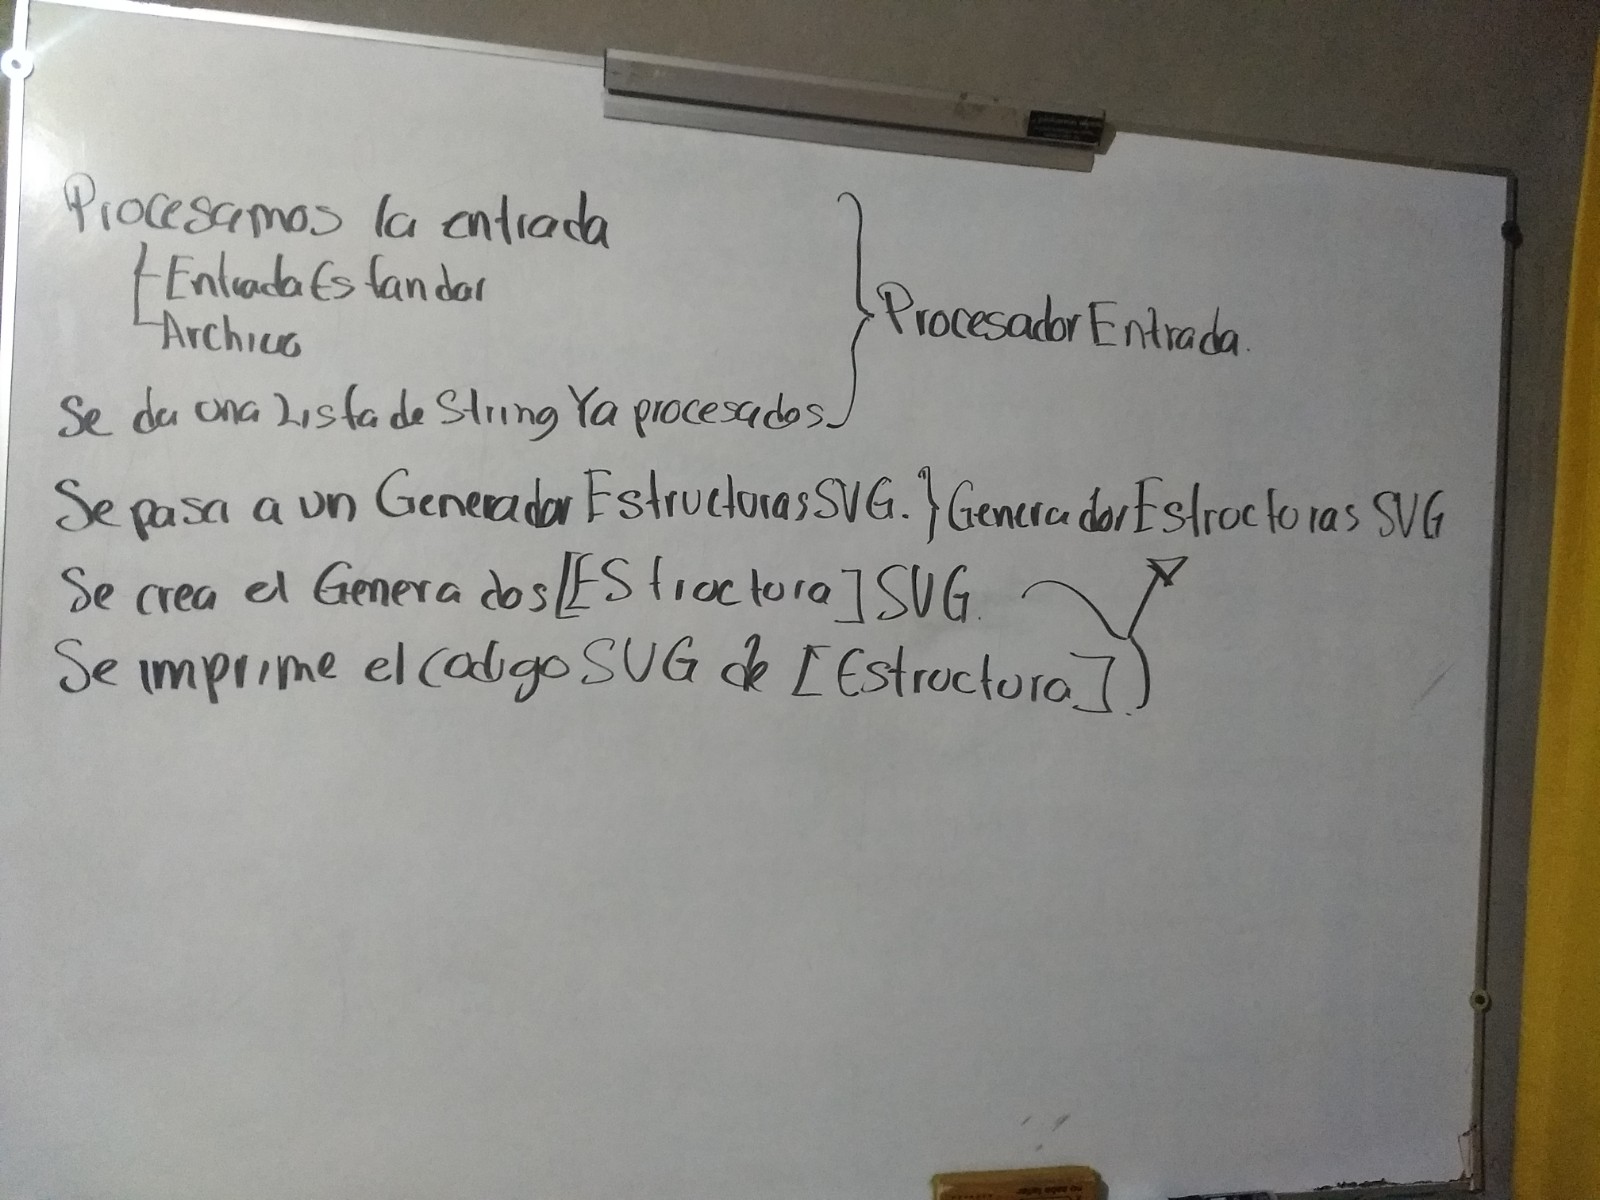 Procesamos la entrada
EntradaEstandar
Archivo
Se da una Lista de String Ya procesados
ProcesadorEntrada.
Se pasa a un GeneradorEstructurasSVG. } GeneradorEstructurasSVG
Se crea el Generados[Estructura]SVG.
Se imprime el codigo SVG de [Estructura].